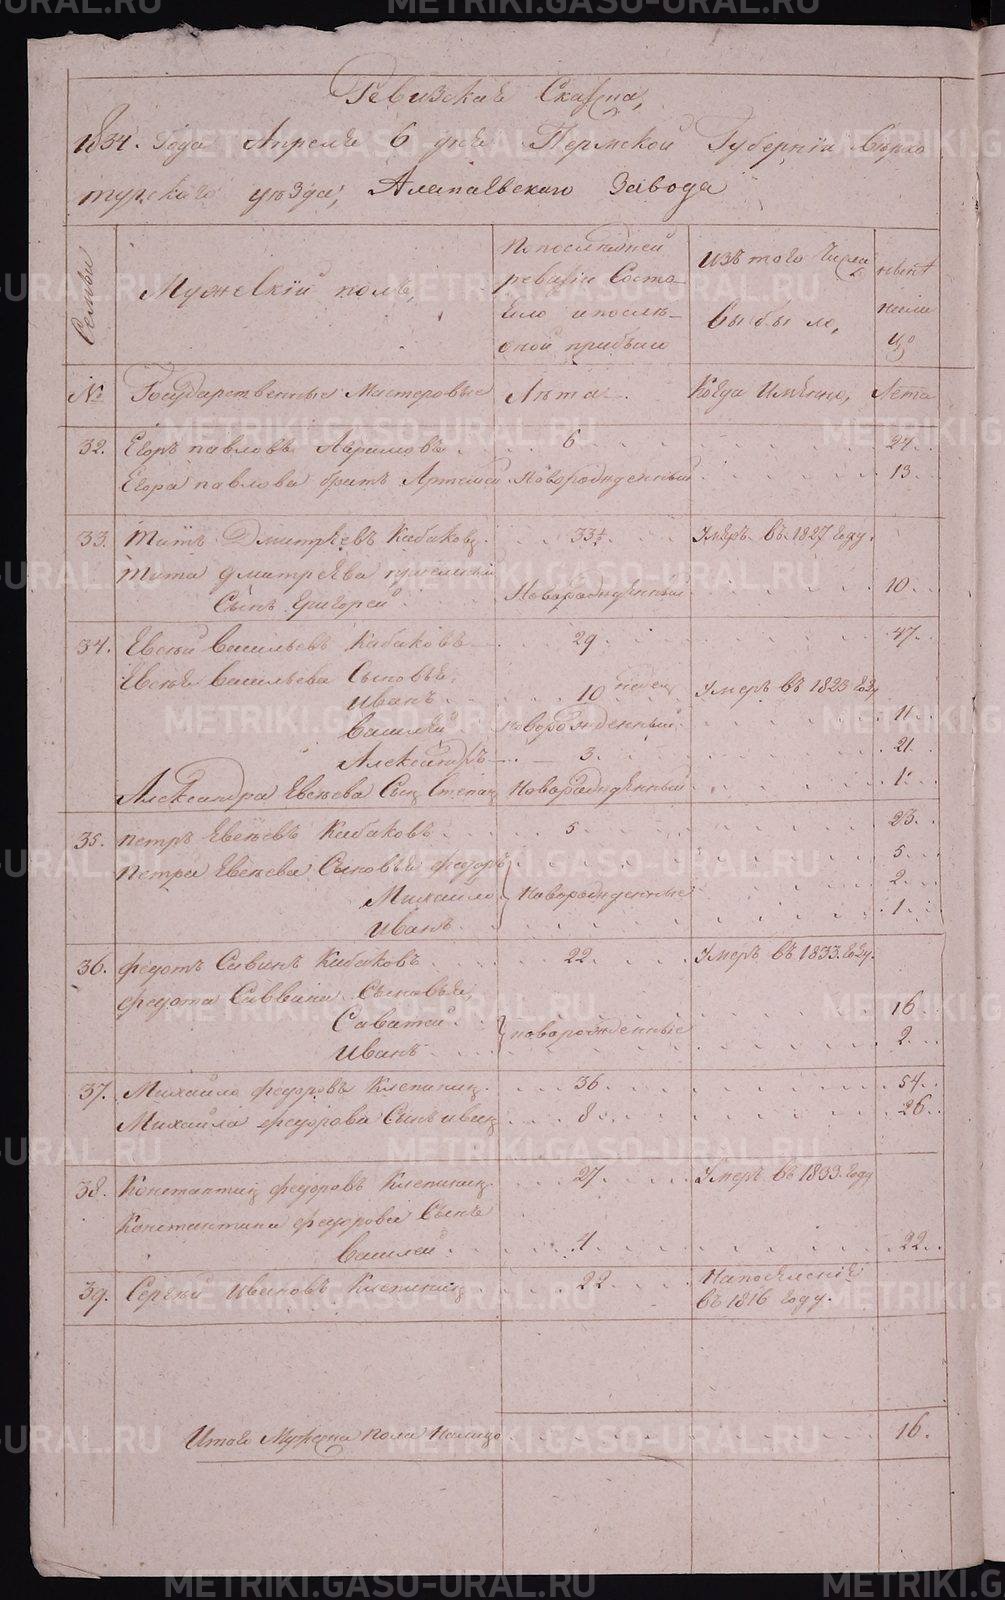 METRIKI.GASO-URAL.RU
Ревизская Сказка,
1834. Года Апреля 6 дня Пермской Губернiи Верхо
турскаго уѣзда, Алапаевскаго Завода
Семьи
Мужескiй полъ,
По последней
ревизiи Состо
яло и после
оной прибыло
изъ того Числа
выбыло,
ныне
на ли
цо
№
Государственные Мастеровые
Лѣта
Когда Имянно,
Лета
32. Егоръ павловъ Аврамовъ 6 24.
Егора павлова братъ Артемей Новорожденный 13.
33. Титъ Дмитрѣевъ Кабаковъ 33½ Умеръ въ 1827 году.
Тита дмитрѣева
Сынъ Григорей Новорожденный 10.
34. Евсѣй Васильевъ Кабаковъ 29 47.
Евсѣя Васильева Сыновья,
Иванъ 10 недел Умеръ въ 1823 году
Василей новорожденный 11.
Александръ 3. 21.
Александра Евсѣева Сынъ Степанъ Новорожденный 1.
35. петръ Евсѣевъ Кабаковъ 5 23.
Петра Евсѣева Сыновья федоръ 5
Михайло Новорожденные 2.
Иванъ 1.
36. федотъ Савинъ Кабаковъ 22 Умеръ въ 1833 году.
федота Саввина Сыновья,
Саватей 16
Иванъ новорожденные 2.
37. Михайло федоровъ Клепининъ 36 54.
Михайла федорова Сынъ иванъ 8 26.
38. Константинъ федоровъ Клепининъ 27 Умеръ въ 1833 году
Константина федорова Сынъ
Василей 4 22.
39. Сергѣй Ивановъ Клепининъ 22
въ 1816 году.
Итого Мужеска пола Налицо 16.